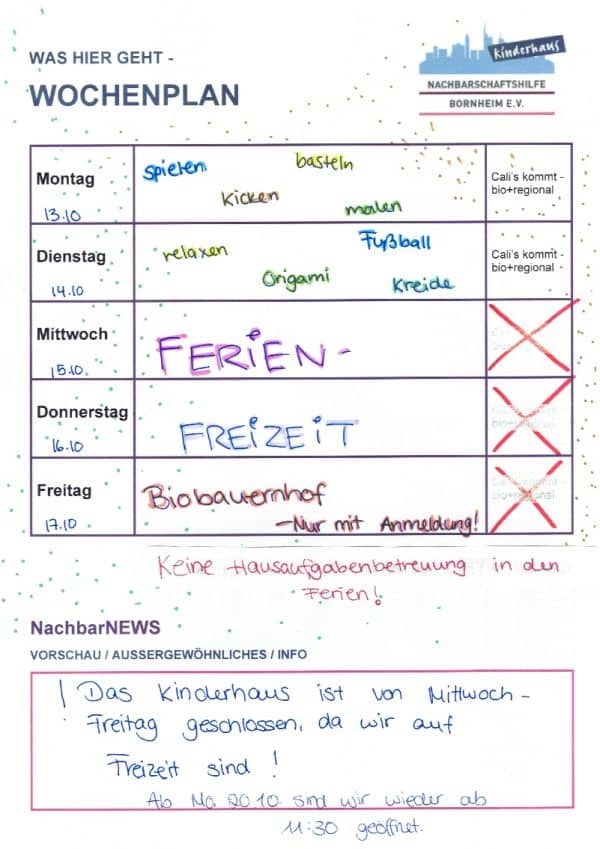 WAS HIER GEHT -
WOCHENPLAN
kinderhaus
NACHBARSCHAFTSHILFE
BORNHEIM E.V.
Montag
13.10
spielen
basteln
kicken
malen
Cali's kommt -
bio+regional
Dienstag
14.10
relaxen
Fußball
Origami
Kreide
Cali's kommt -
bio+regional
Mittwoch
15.10.
FERIEN -
Donnerstag
16.10
FREIZEIT
Freitag
17.10
Biobauernhof
- Nur mit Anmeldung!
Keine Hausaufgabenbetreuung in den
Ferien!
NachbarNEWS
VORSCHAU / AUSSERGEWÖHNLICHES / INFO
! Das Kinderhaus ist von Mittwoch -
Freitag geschlossen, da wir auf
Freizeit sind !
Ab Mo. 20.10. sind wir wieder ab
11:30 geöffnet.